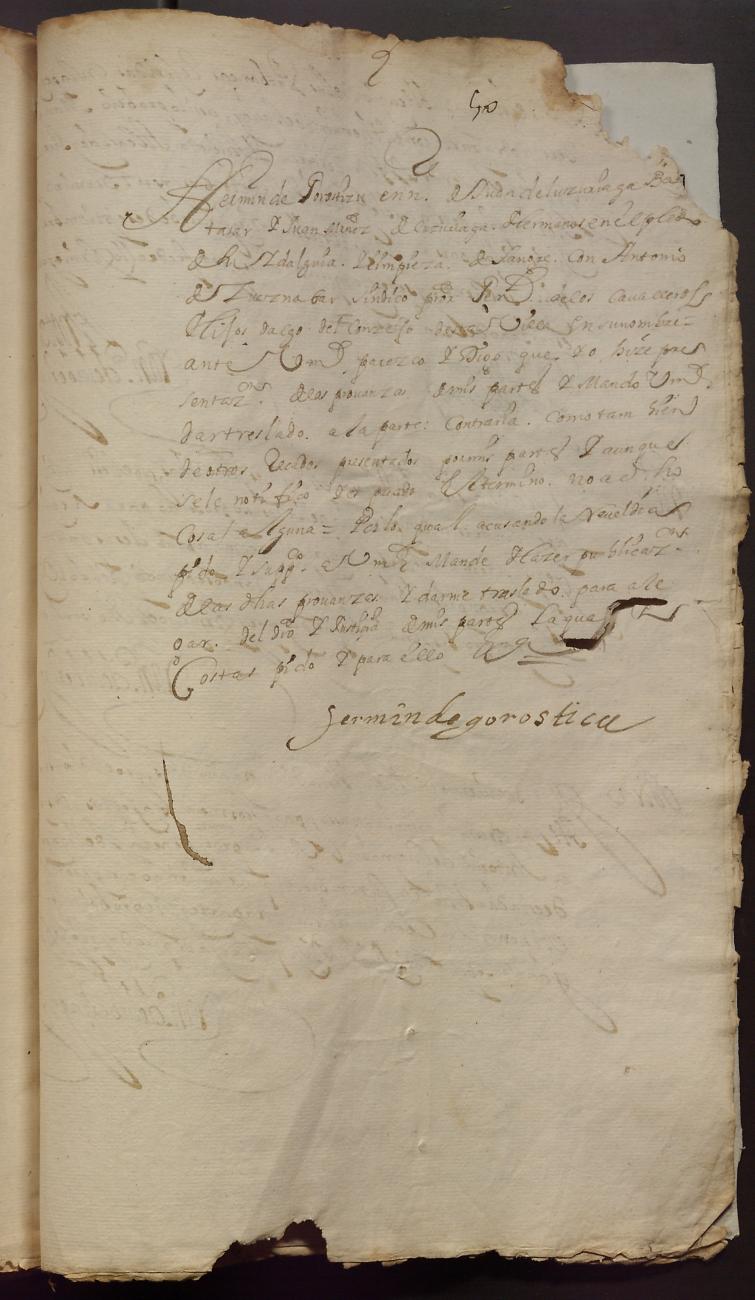 50
fermin de Gorostizu en n.e de Juan de luzuriaga Bal
tasar Y Juan muñoz de luzuriaga Hermanos en el pleyto
de su Ydalguia. Y limpieza. de sangre. con Antonio
de sindico pror Jenl. de los cavalleros
Hijos dalgo del Conzejo desta Villa En su nombre =
ante Vmd parezco Y Digo que Yo hize pre
sentazon. de las provanzas de mis partes Y Mando Vmd
dar treslado a la parte contraria. como tam bien
de otros recados presentados por mis partes Y aunque
se le notifico Y es pasado El termino no a dho
Cosa alguna = Por lo qual acusando la reveldia
pido Y suppco. a Vmd Mande Hazer publicazon
de las dhas provanzas Y darme traslado para ale
gar del dro Y Justizia de mis partes la qual
Costas pido Y para ello
fermin de gorosticu